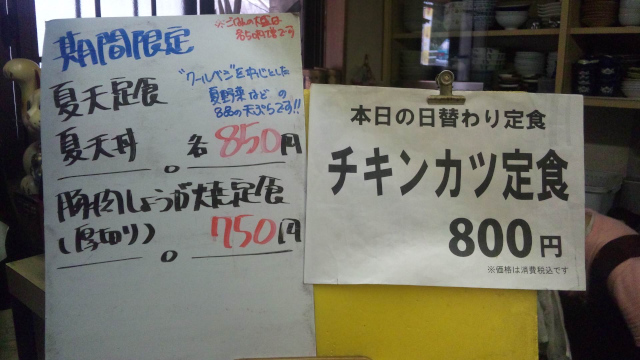 期間限定
※ごはん大盛は
各50円増です
夏天定食
"クールベジ"を中心とした
夏野菜などの
8品の天ぷらです!!
夏天丼 各850円
豚肉しょうが焼定食
(厚切り) 750円
本日の日替わり定食
チキンカツ定食
800円
※価格は消費税込です